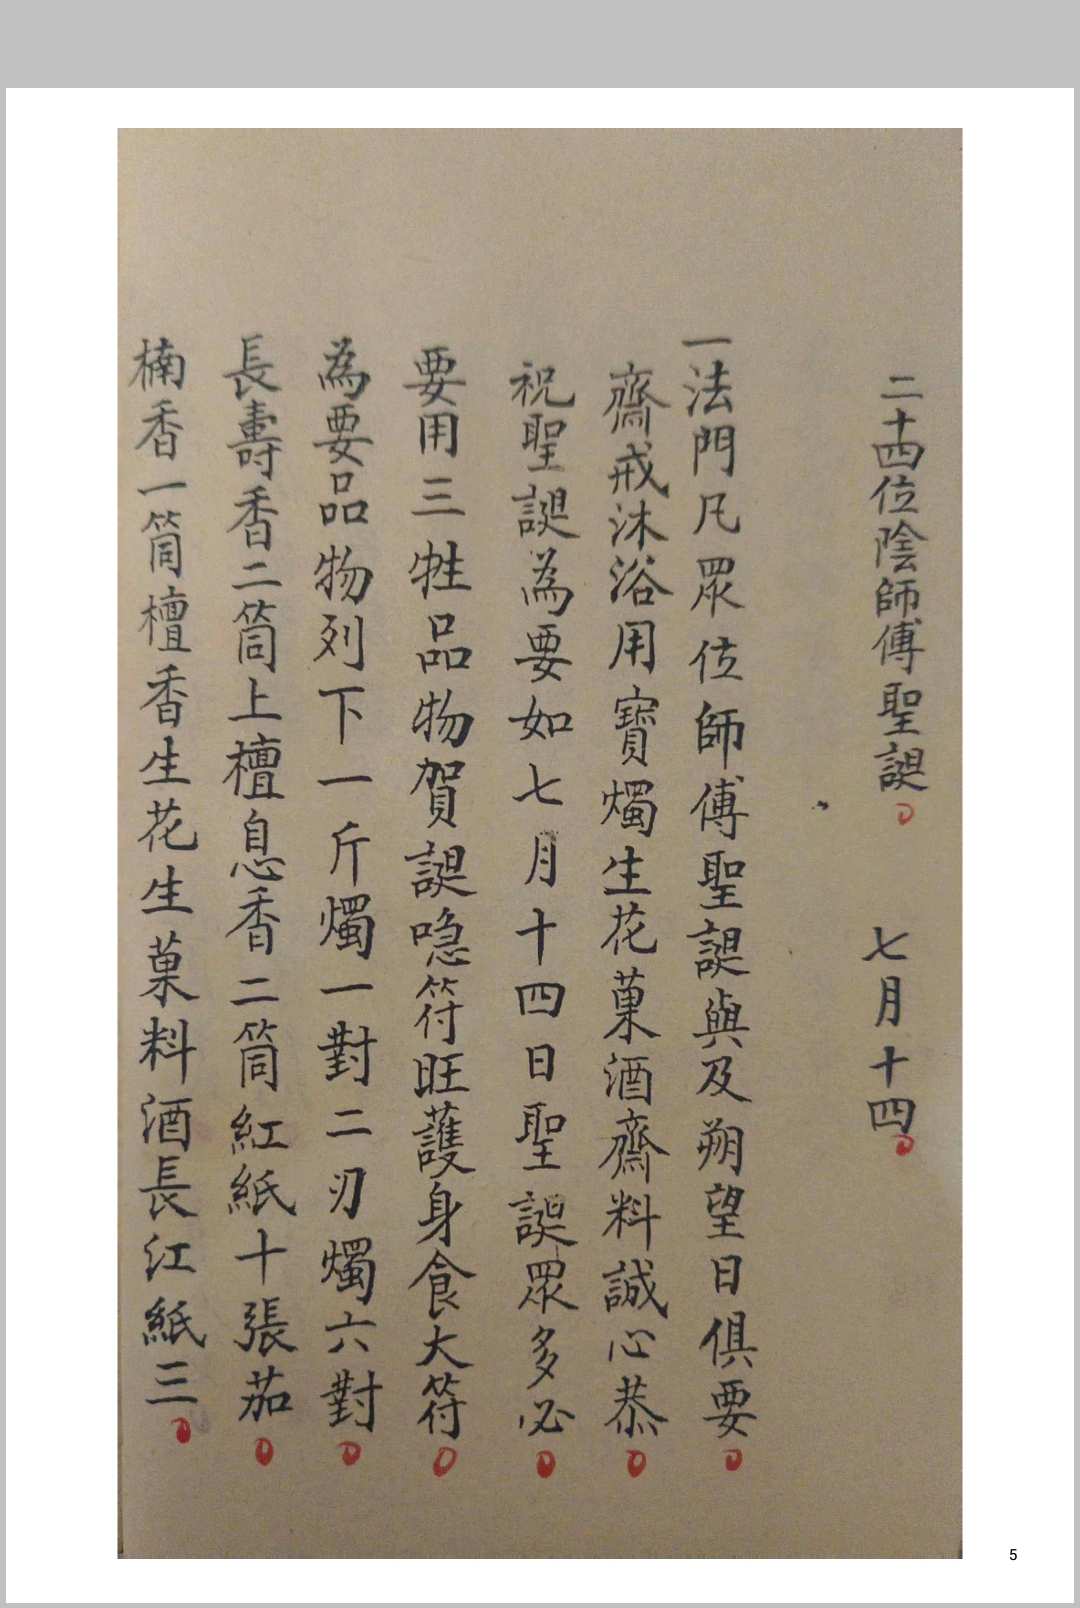 二十四位陰師傅聖誕 七月十四
一法門凡眾位師傅聖誕與及朔望日俱要
齋戒沐浴用寶燭生花菓酒齋料誠心恭
祝聖誕為要如七月十四日聖誕眾多必
要用三牲品物賀誕喼符旺護身食大符
為要品物列下一斤燭一對二刃燭六對
長壽香二筒上檀息香二筒紅紙十張茄
楠香一筒檀香生花生菓料酒長江紙三
5